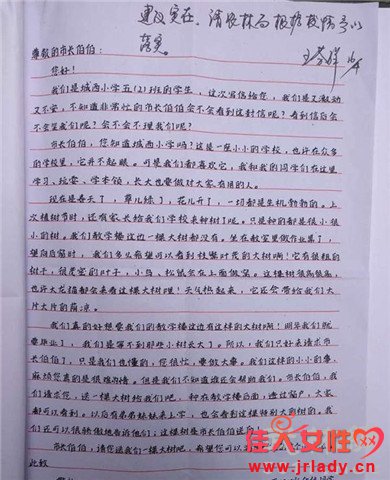 建议实在，请农林局根据校情予以
落实。
尊敬的市长伯伯：
您好！
我们是城西小学五(2)班的学生，这次写信给您，我们是又激动
又不安，不知道非常忙的市长伯伯会不会看到这封信呢？看到信后会
不会笑我们呢？会不会不理我们呢？
市长伯伯，您知道城西小学吗？这是一座小小的学校，也许在众多
的学校里，它并不起眼。可是我们都喜欢它，我和我的同学们在这里
学习、玩耍、学本领，长大也要做对大家有用的人。
现在是春天了，草儿绿了，花儿开了，一切都是生机勃勃的。上
次植树节时，还有家长给我们学校来种树了呢。只是种的都是很小很
小的树。我们教学楼这边一棵大树都没有。坐在教室里做作业累了，
望向窗前时，我们多么希望可以看到枝繁叶茂的大树啊！它有很粗的
树干，很茂密的叶子，小鸟、松鼠会在上面做窝。这棵树很高很高，
也许大龙猫都会来看这棵大树哩！天气热起来，它还会带给我们大
片大片的荫凉。
我们真的好想要我们的教学楼这边有这样的大树啊！明年我们就
要毕业了，我们是等不到那些小树长大了。所以，我们只好来请求市
长伯伯了，只是我们也懂的，您很忙，要做大事。我们这样的小小的事
麻烦您真的是很难为情。但是我们不知道谁还会帮助我们。市长伯伯，我
们请求您，送一棵大树给我们吧，种在教学楼后面，透过窗户，大家
都可以看到。以后有弟弟妹妹来上学，也会看到这棵特别大的树的。我
们还可以很骄傲地告诉他们：这棵树是市长伯伯送的。
市长伯伯，请您送我们一棵大树吧。希望您可以
此致
佳人女性网
www.jrlady.cn